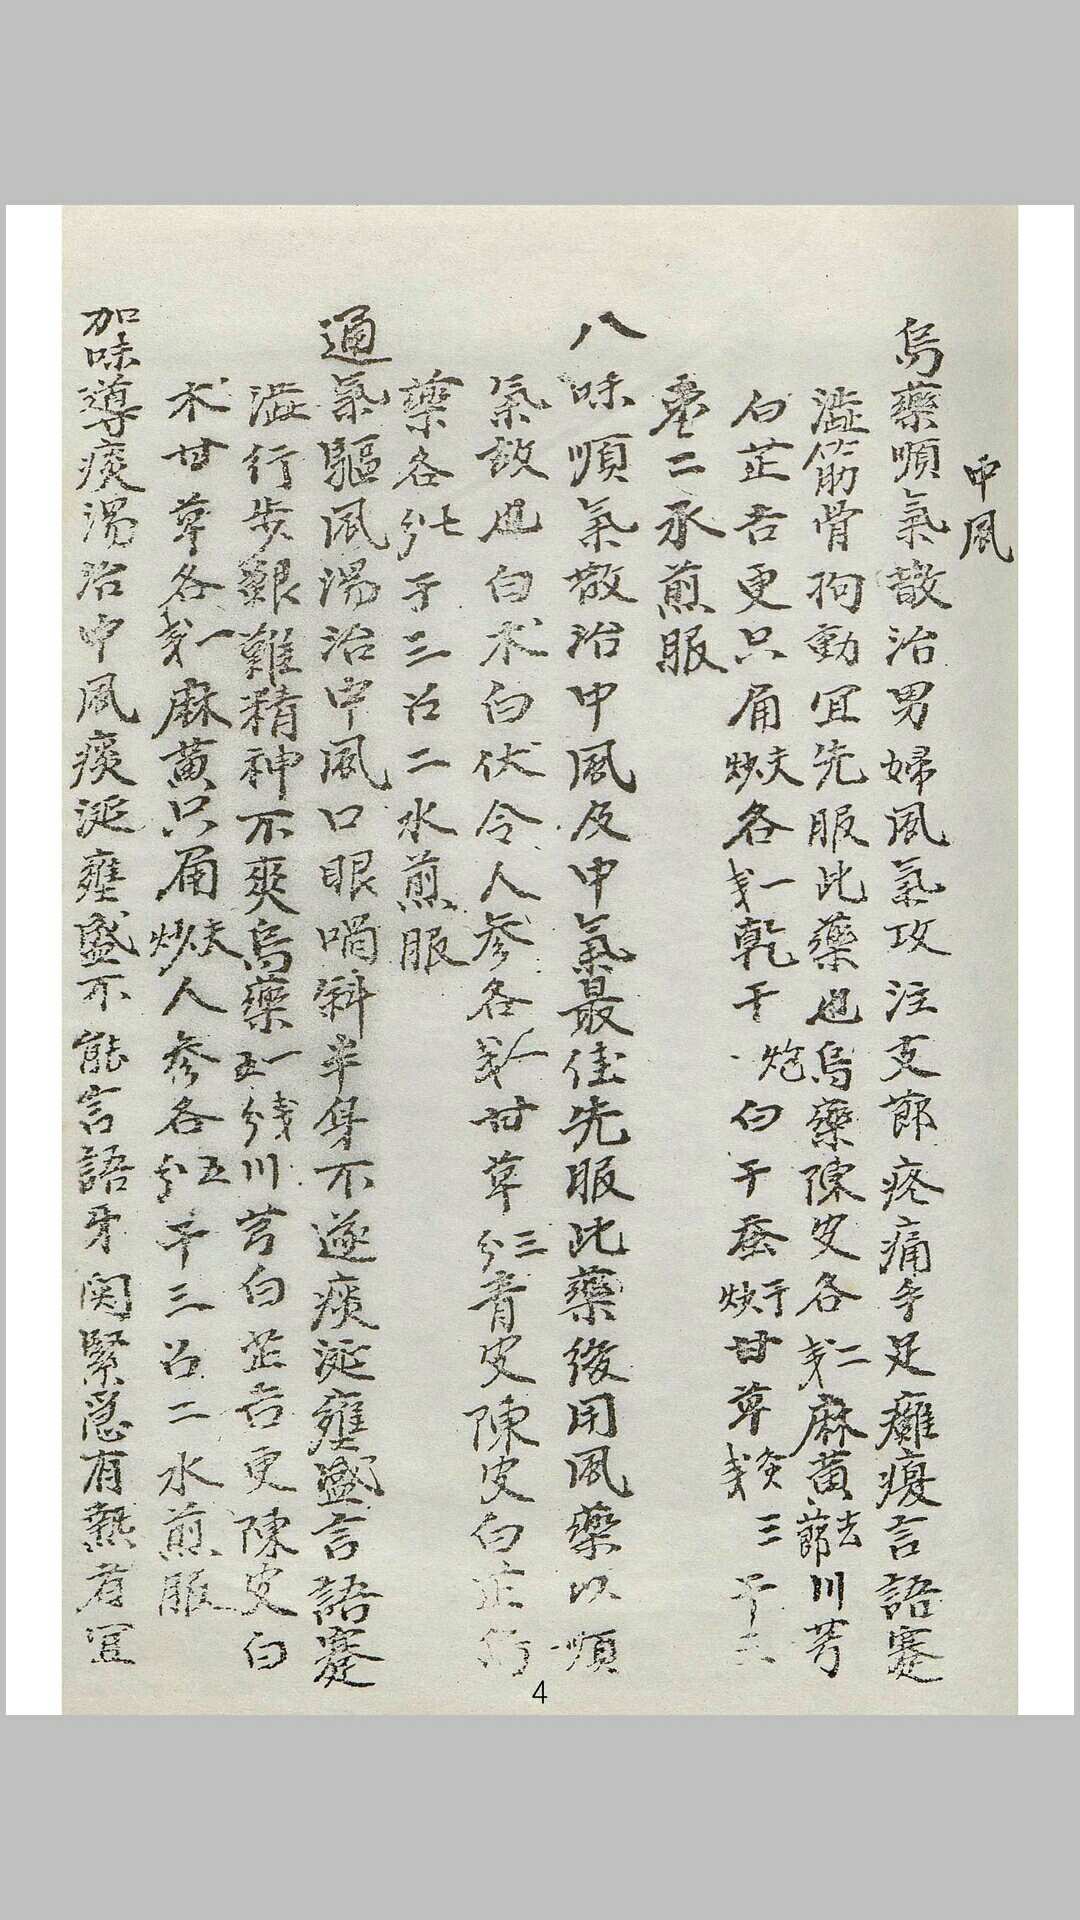 中風
烏藥順氣散治男婦風氣攻注支節疼痛手足癱瘓言語蹇
澁筋骨拘動宜先服此藥也烏藥陳皮各二戔麻黃去節川芎
白芷吉更只角炒夫各一戔乾干炮白干蚕炒干甘草灸戔三干三
棗二水煎服
八味順氣散治中風及中氣最佳先服此藥後用風藥以順
氣故也白朮白伏令人參各一戔甘草三分青皮陳皮白芷
藥各七分干三召二水煎服
通氣驅風湯治中風口眼喎斜半身不遂痰涎壅盛言語蹇
澁行步艱難精神不爽烏藥一戔五分川芎白芷吉更陳皮白
朮甘草各一戔麻黃只角炒夫人參各五分干三召二水煎服
加味導痰湯治中風痰涎壅盛不能言語牙関緊急有熱者宜
4